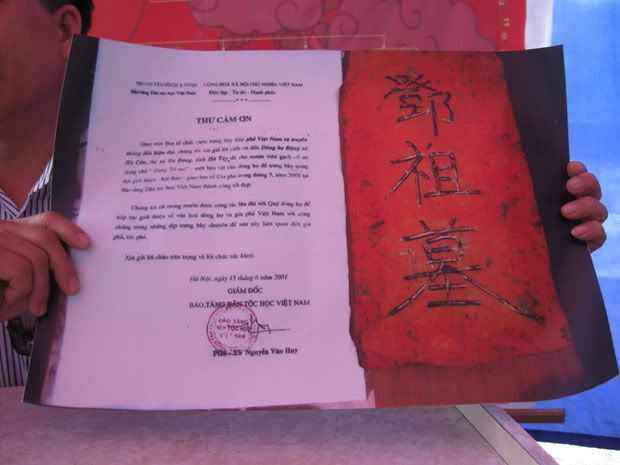 TRUNG TÂM KHXH & NVQG
CỘNG HOÀ XÃ HỘI CHỦ NGHĨA VIỆT NAM
Bảo tàng Dân tộc học Việt Nam
Độc lập - Tự do - Hạnh phúc
THƯ CẢM ƠN
Thay mặt Ban tổ chức cuộc trưng bày Gia phả Việt Nam từ truyền
thống đến hiện đại, chúng tôi xin gửi lời cảm ơn đến Dòng họ Đặng xã
Hà Cầu, thị xã Hà Đông, tỉnh Hà Tây đã cho mượn viên gạch cổ có
dòng chữ " Đặng Tổ mộ" - một báu vật của dòng họ để trưng bày trong
đợt giới thiệu - hội thảo - giao lưu về Gia phả trong tháng 5, năm 2001 tại
Bảo tàng Dân tộc học Việt Nam thành công tốt đẹp.
Chúng tôi rất mong muốn được cộng tác lâu dài với Quý dòng họ để
tiếp tục giới thiệu về văn hoá dòng họ và gia phả Việt Nam với công
chúng trong những dịp trưng bày chuyên đề sau này liên quan đến gia
phả, tộc phả.
Xin gửi lời chào trân trọng và lời chúc sức khoẻ.
Hà Nội, ngày 15 tháng 6 năm 2001
GIÁM ĐỐC
BẢO TÀNG DÂN TỘC HỌC VIỆT NAM
BẢO TÀNG
DÂN TỘC HỌC
VIỆT NAM
PGS - TS Nguyễn Văn Huy
鄧
祖
墓